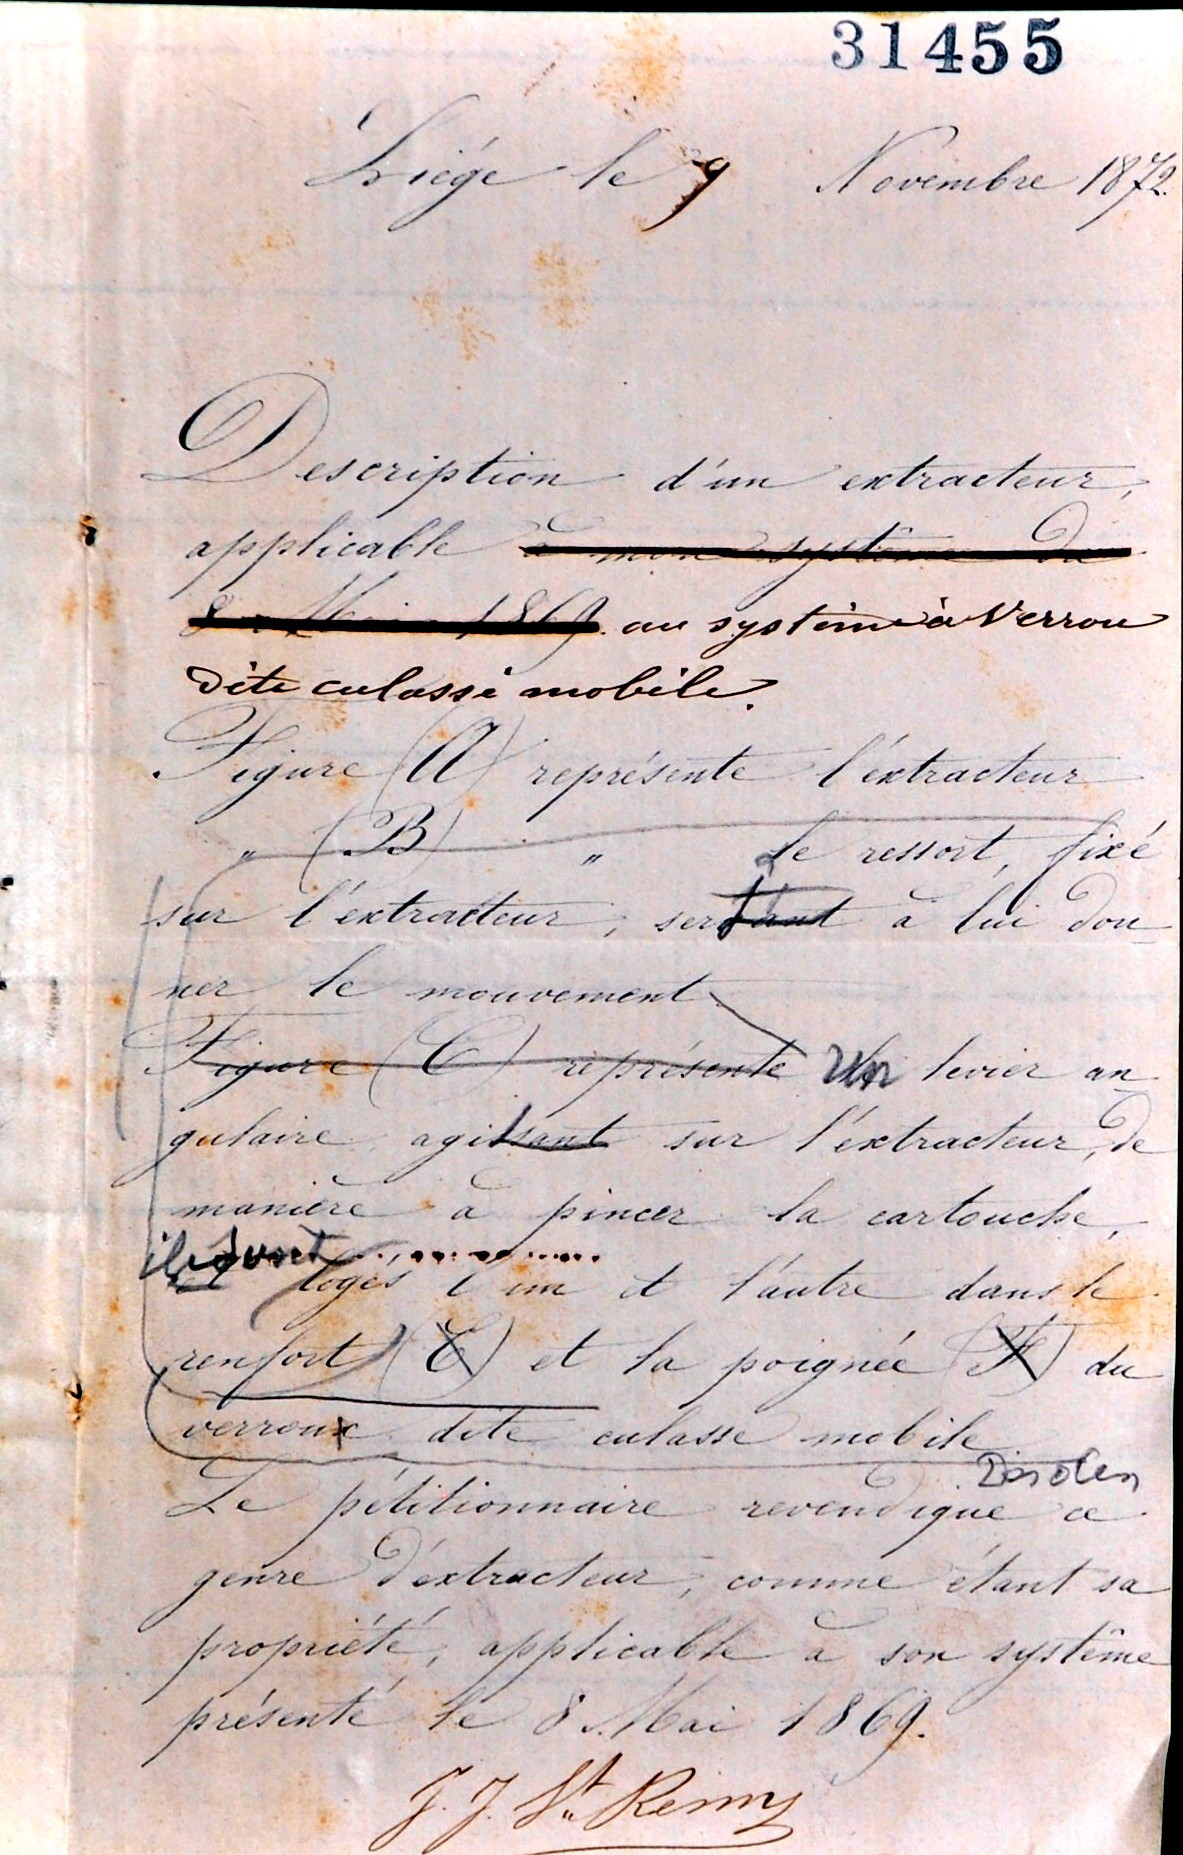 31455
Liége le 9 Novembre 1872.
Description d'un extracteur,
applicable à mon système du
8 Mai 1869. au système à Verrou
dite culasse mobile.
Figure (A) représente l'éxtracteur
„ (B) „ Le ressort, fixé
sur l'éxtracteur, servant à lui don-
ner le mouvement
Figure (C) représente Un levier an-
gulaire agissant sur l'éxtracteur, de
manière à pincer la cartouche,
logés l'un et l'autre dans le
renfort (E) et la poignée (F) du
verroux dite culasse mobile
Le pétitionnaire revendique ce
genre d'éxtracteur, comme étant sa
propriété, applicable à son système
présenté le 8 Mai 1869.
J. J. St Remy